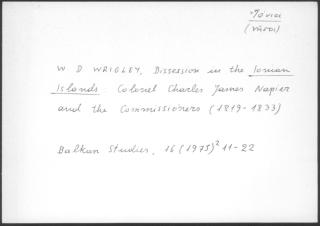 Ἰόνια
(νῆσοι)
W. D. WRIGLEY, Dissension in the Ionian
Islands Colonel Charles James Napier
and the Commissioners (1819-1833)
Balkan Studies, 16 (1975)² 11-22